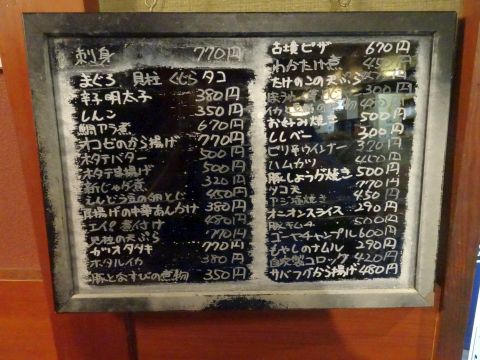 刺身 770円
まぐろ 貝柱 くじら タコ
辛子明太子 380円
しんこ 350円
鯛アラ煮 670円
オコゼのから揚げ 770円
ホタテバター 500円
ホタテ串揚げ 500円
新じゃが煮 320
えんどう豆の卵とじ 450円
具揚げの中華あんかけ 380円
エイ煮付け 480円
貝柱の天ぷら 770円
カツオタタキ 770円
ホタルイカ 380円
豚となすびの煮物 350円
古墳ピザ 670円
わかたけ煮 450
たけのこの天ぷら
お好み焼き 500円
ししべー 300円
ピリ辛ウインナー 320円
ハムカツ
豚しょうが焼き 500円
タコ天 770円
450
オニオンスライス 290円
豚キムチ 500円
ゴーヤチャンプル 600円
もやしのナムル 290円
自家製コロッケ 420円
サバフグから揚げ 480円